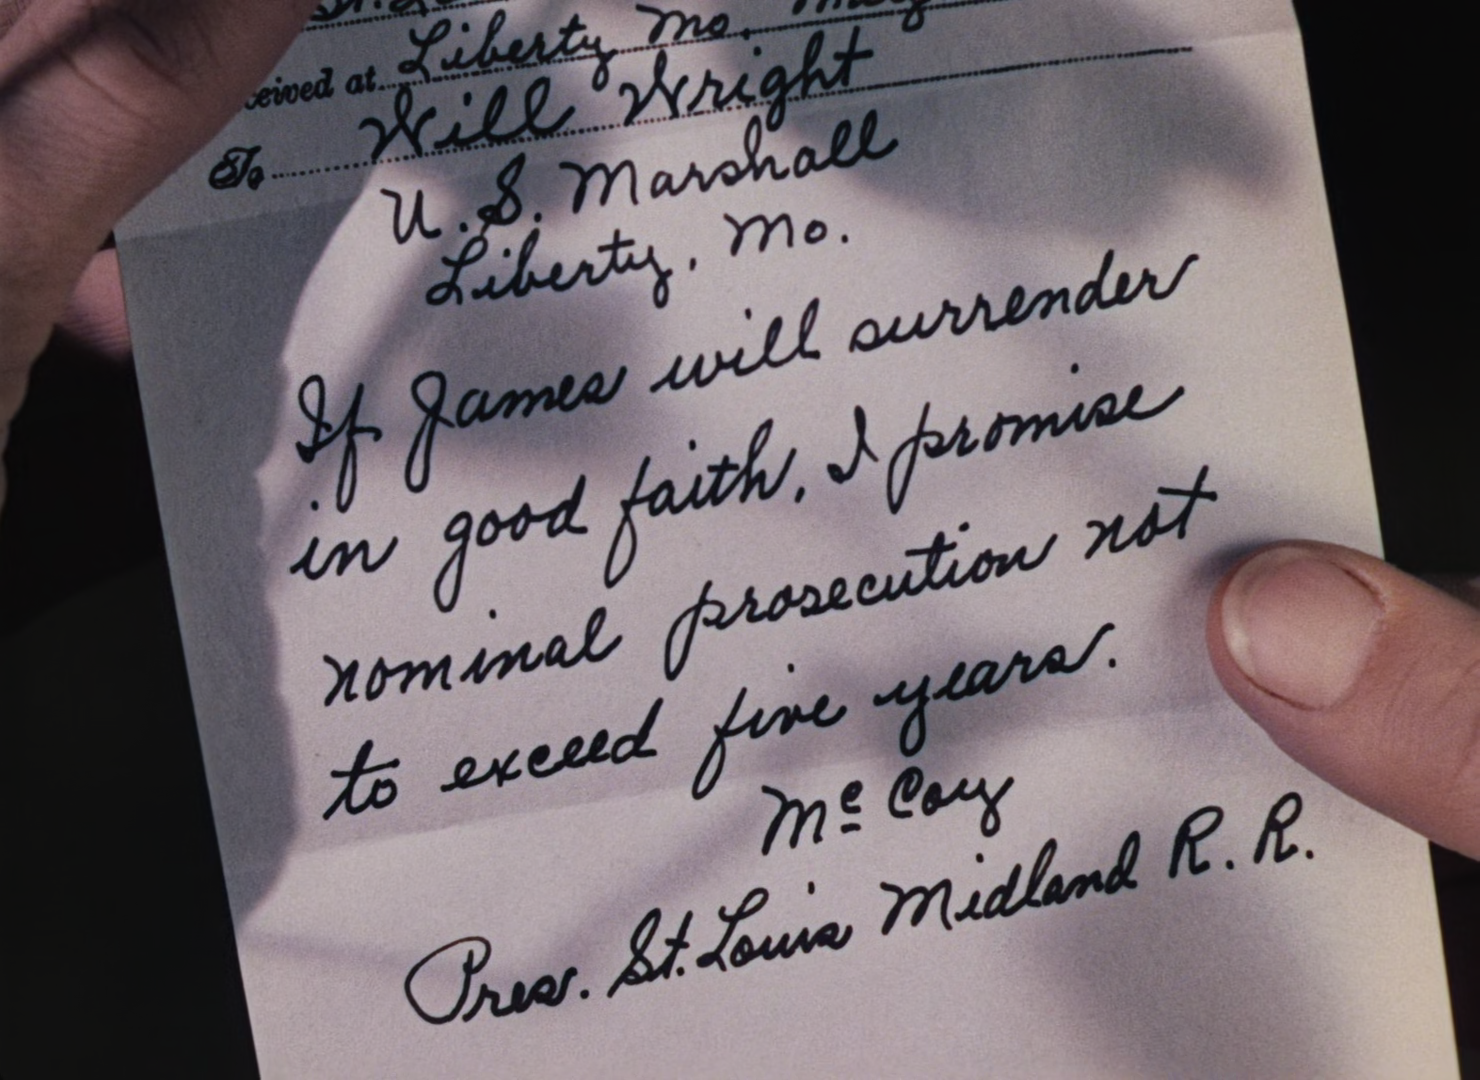 Liberty Mo.
ceived at Will Wright
To
U. S. Marshall
Liberty, Mo.
If James will surrender
in good faith, I promise
nominal prosecution not
to exceed five years.
Mc Coy
Pres. St. Louis Midland R. R.